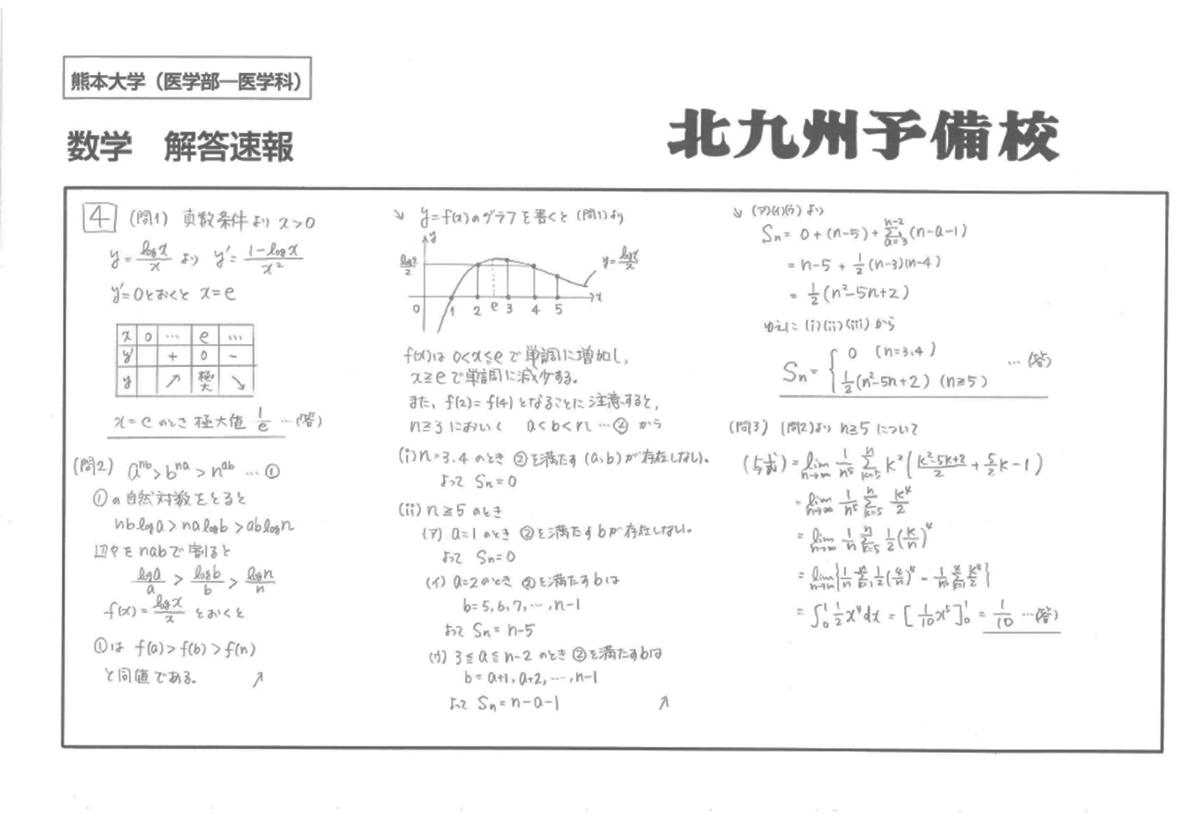 熊本大学（医学部―医学科）
数学 解答速報
北九州予備校
4 (問1) 真数条件より x>0
y = log x / x より y' = (1 - log x) / x²
y'=0とおくと x=e
x 0 … e …
y' + 0 −
y ↗ 極大 ↘
x=e のとき 極大値 1/e …(答)
(問2) a^{nb} > b^{na} > n^{ab} … ①
①の自然対数をとると
nb log a > na log b > ab log n
辺々をnabで割ると
log a / a > log b / b > log n / n
f(x) = log x / x とおくと
①は f(a) > f(b) > f(n)
と同値である。 ↗
↘ y=f(x)のグラフを書くと (問1)より
y
log2/2
y = log x / x
0 1 2 e 3 4 5 x
f(x)は 0<x≦e で単調に増加し、
x≧e で単調に減少する。
また、f(2)=f(4)となることに注意すると、
n≧3 において a<b<n … ② から
(i) n=3.4 のとき ②を満たす (a,b)が存在しない。
よって Sn=0
(ii) n≧5 のとき
(ア) a=1 のとき ②を満たすbが存在しない。
よって Sn=0
(イ) a=2のとき ②を満たすbは
b=5,6,7,…,n-1
よって Sn=n-5
(ウ) 3≦a≦n-2 のとき ②を満たすbは
b=a+1,a+2,…,n-1
よって Sn=n-a-1 ↗
↘ (ア)(イ)(ウ)より
Sn= 0+(n-5)+ Σ_{a=3}^{n-2} (n-a-1)
= n-5 + 1/2 (n-3)(n-4)
= 1/2 (n²-5n+2)
ゆえに (i)(ii)(iii)から
Sn = { 0 (n=3,4)
1/2 (n²-5n+2) (n≧5) …(答)
(問3) (問2)より n≧5 について
(与式) = lim_{n→∞} 1/n⁵ Σ_{k=5}^{n} k² ( (k²-5k+2)/2 + 5/2 k - 1 )
= lim_{n→∞} 1/n⁵ Σ_{k=5}^{n} k⁴/2
= lim_{n→∞} 1/n Σ_{k=5}^{n} 1/2 (k/n)⁴
= lim_{n→∞} { 1/n Σ 1/2 (k/n)⁴ - 1/n⁵ Σ k⁴/2 }
= ∫₀¹ 1/2 x⁴ dx = [ 1/10 x⁵ ]₀¹ = 1/10 …(答)